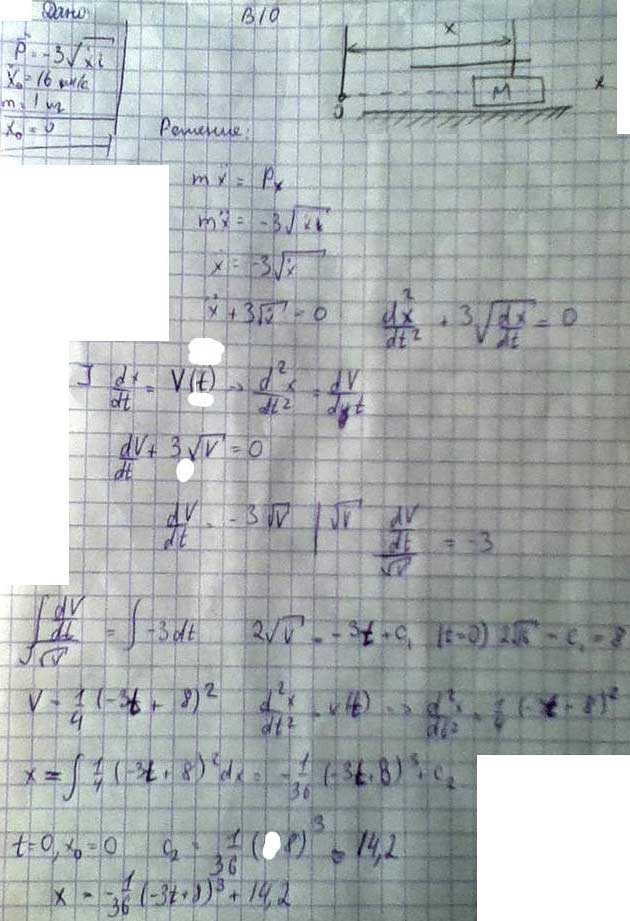 Дано В10
P̄ = -3√ẋ ī
ẋ₀ = 16 м/с
m = 1 кг
x₀ = 0
x
M
x
0
Решение:
mẍ = Pₓ
mẍ = -3√ẋ
ẍ = -3√ẋ
ẍ + 3√ẋ = 0 d²x/dt² + 3√(dx/dt) = 0
] dx/dt = V(t) → d²x/dt² = dV/dt
dV/dt + 3√V = 0
dV/dt = -3√V | √V (dV/dt)/√V = -3
∫ (dV/dt)/√V = ∫ -3dt 2√V = -3t + c₁ (t=0) c₁ = 8
V = 1/4 (-3t + 8)² d²x/dt² = v(t) => d²x/dt² = 1/4 (-3t + 8)²
x = ∫ 1/4 (-3t + 8)² dx = -1/36 (-3t + 8)³ + c₂
t=0, x₀=0 c₂ = 1/36 (8)³ = 14,2
x = -1/36 (-3t+8)³ + 14,2